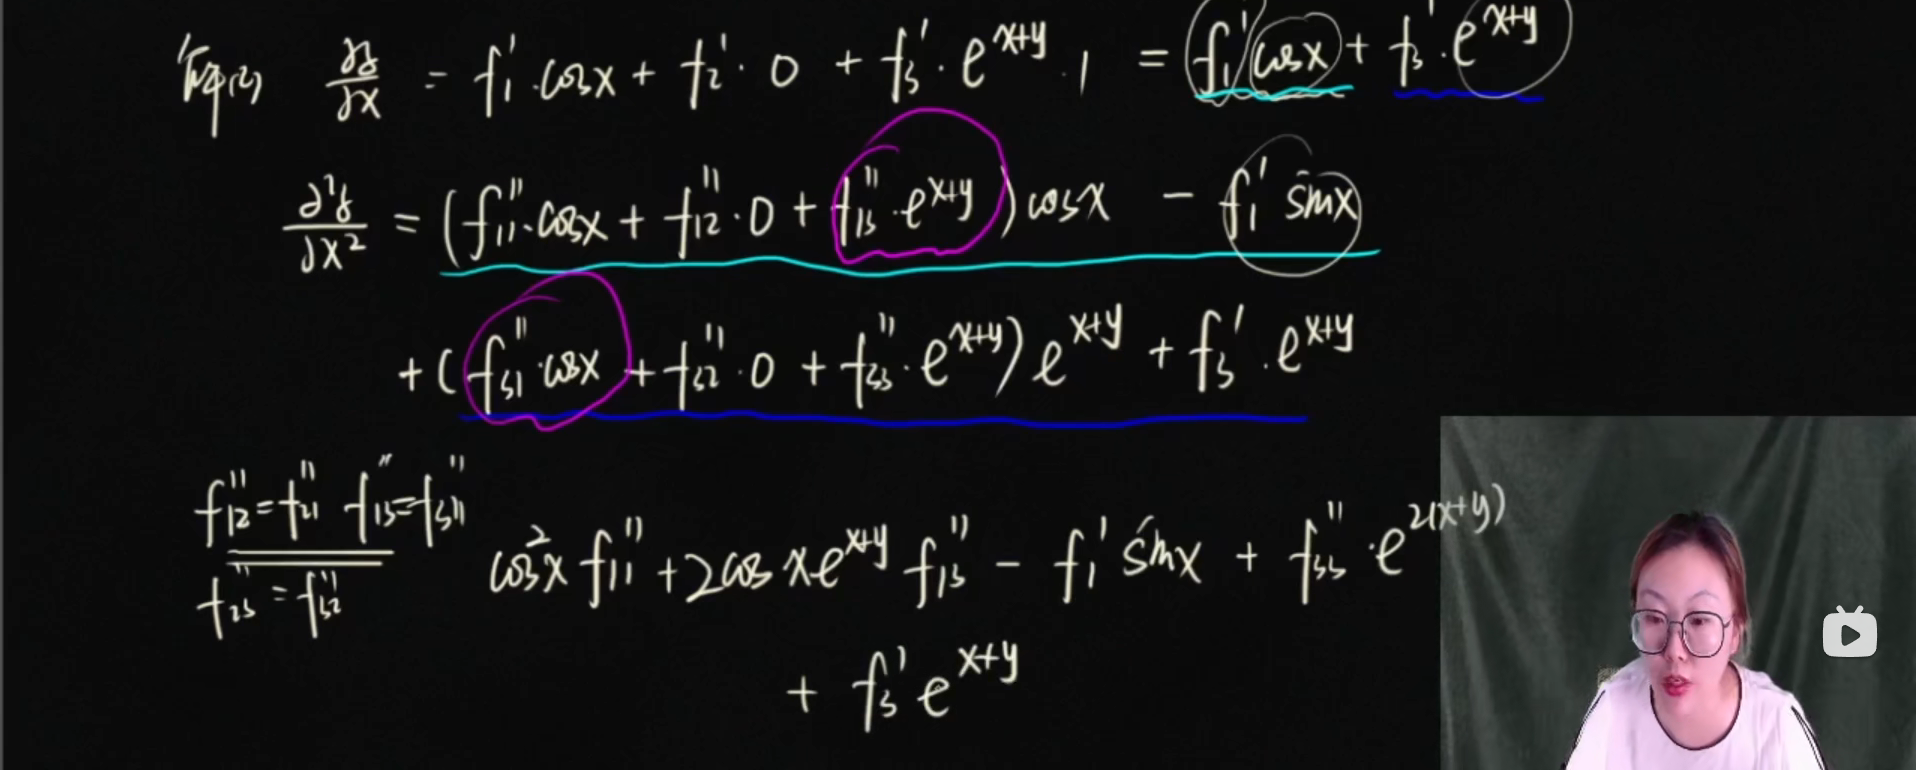 例(2) ∂z/∂x = f₁′·cosx + f₂′·0 + f₃′·e^{x+y}·1 = f₁′cosx + f₃′·e^{x+y}
∂²z/∂x² = (f₁₁″·cosx + f₁₂″·0 + f₁₃″·e^{x+y})cosx − f₁′sinx
+(f₃₁″·cosx + f₃₂″·0 + f₃₃″·e^{x+y})e^{x+y} + f₃′·e^{x+y}
f₁₂″=f₂₁″ f₁₃″=f₃₁″
f₂₃″=f₃₂″
cos²x f₁₁″ + 2cosxe^{x+y}f₁₃″ − f₁′sinx + f₃₃″·e^{2(x+y)}
+ f₃′e^{x+y}